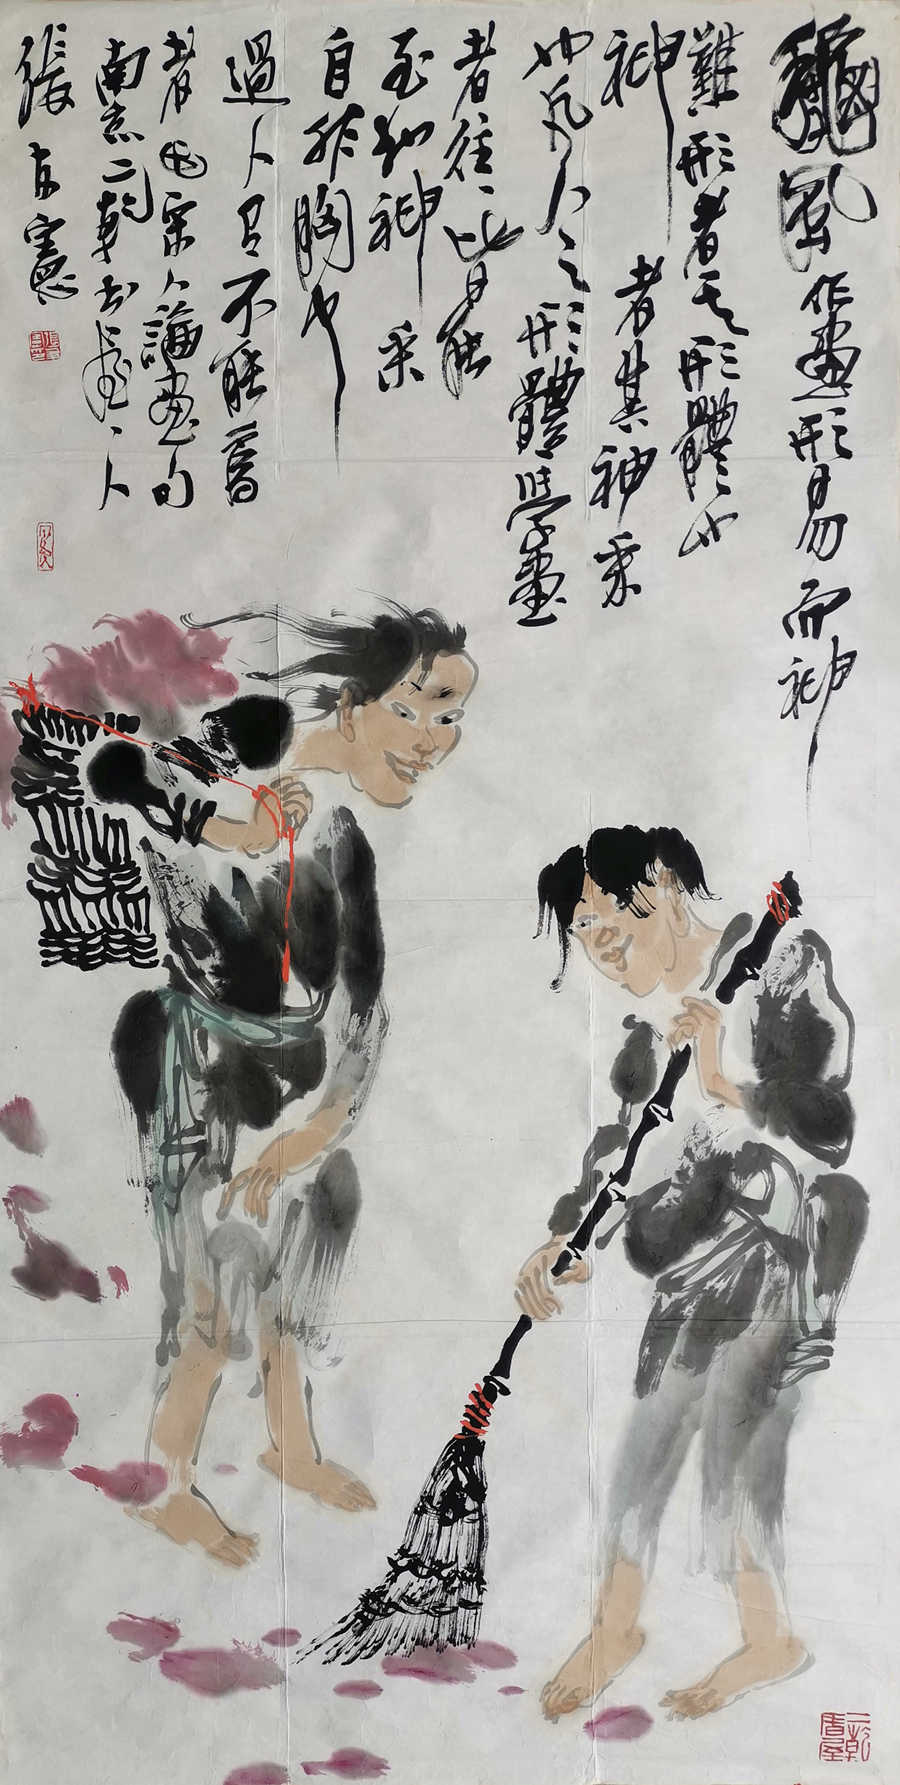 龝風 作畫形易而神
難形者其形體也
神者其神采
也凡人之形體學畫
者往〻皆能
至於神采
自非胸中
過人有不能為
者也宋人論畫句
南京二乾書屋主人
張友憲
二乾書屋